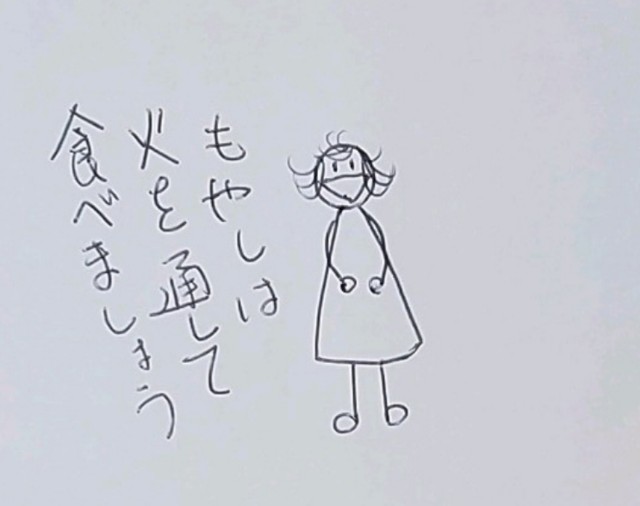 もやしは
火を通して
食べましょう